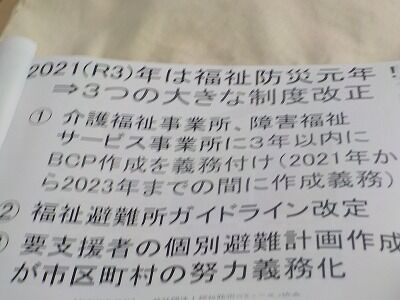 2021(R3)年は福祉防災元年!
⇒3つの大きな制度改正
① 介護福祉事業所、障害福祉
サービス事業所に3年以内に
BCP作成を義務付け(2021年か
ら2023年までの間に作成義務)
② 福祉避難所ガイドライン改定
要支援者の個別避難計画作成
が市区町村の努力義務化